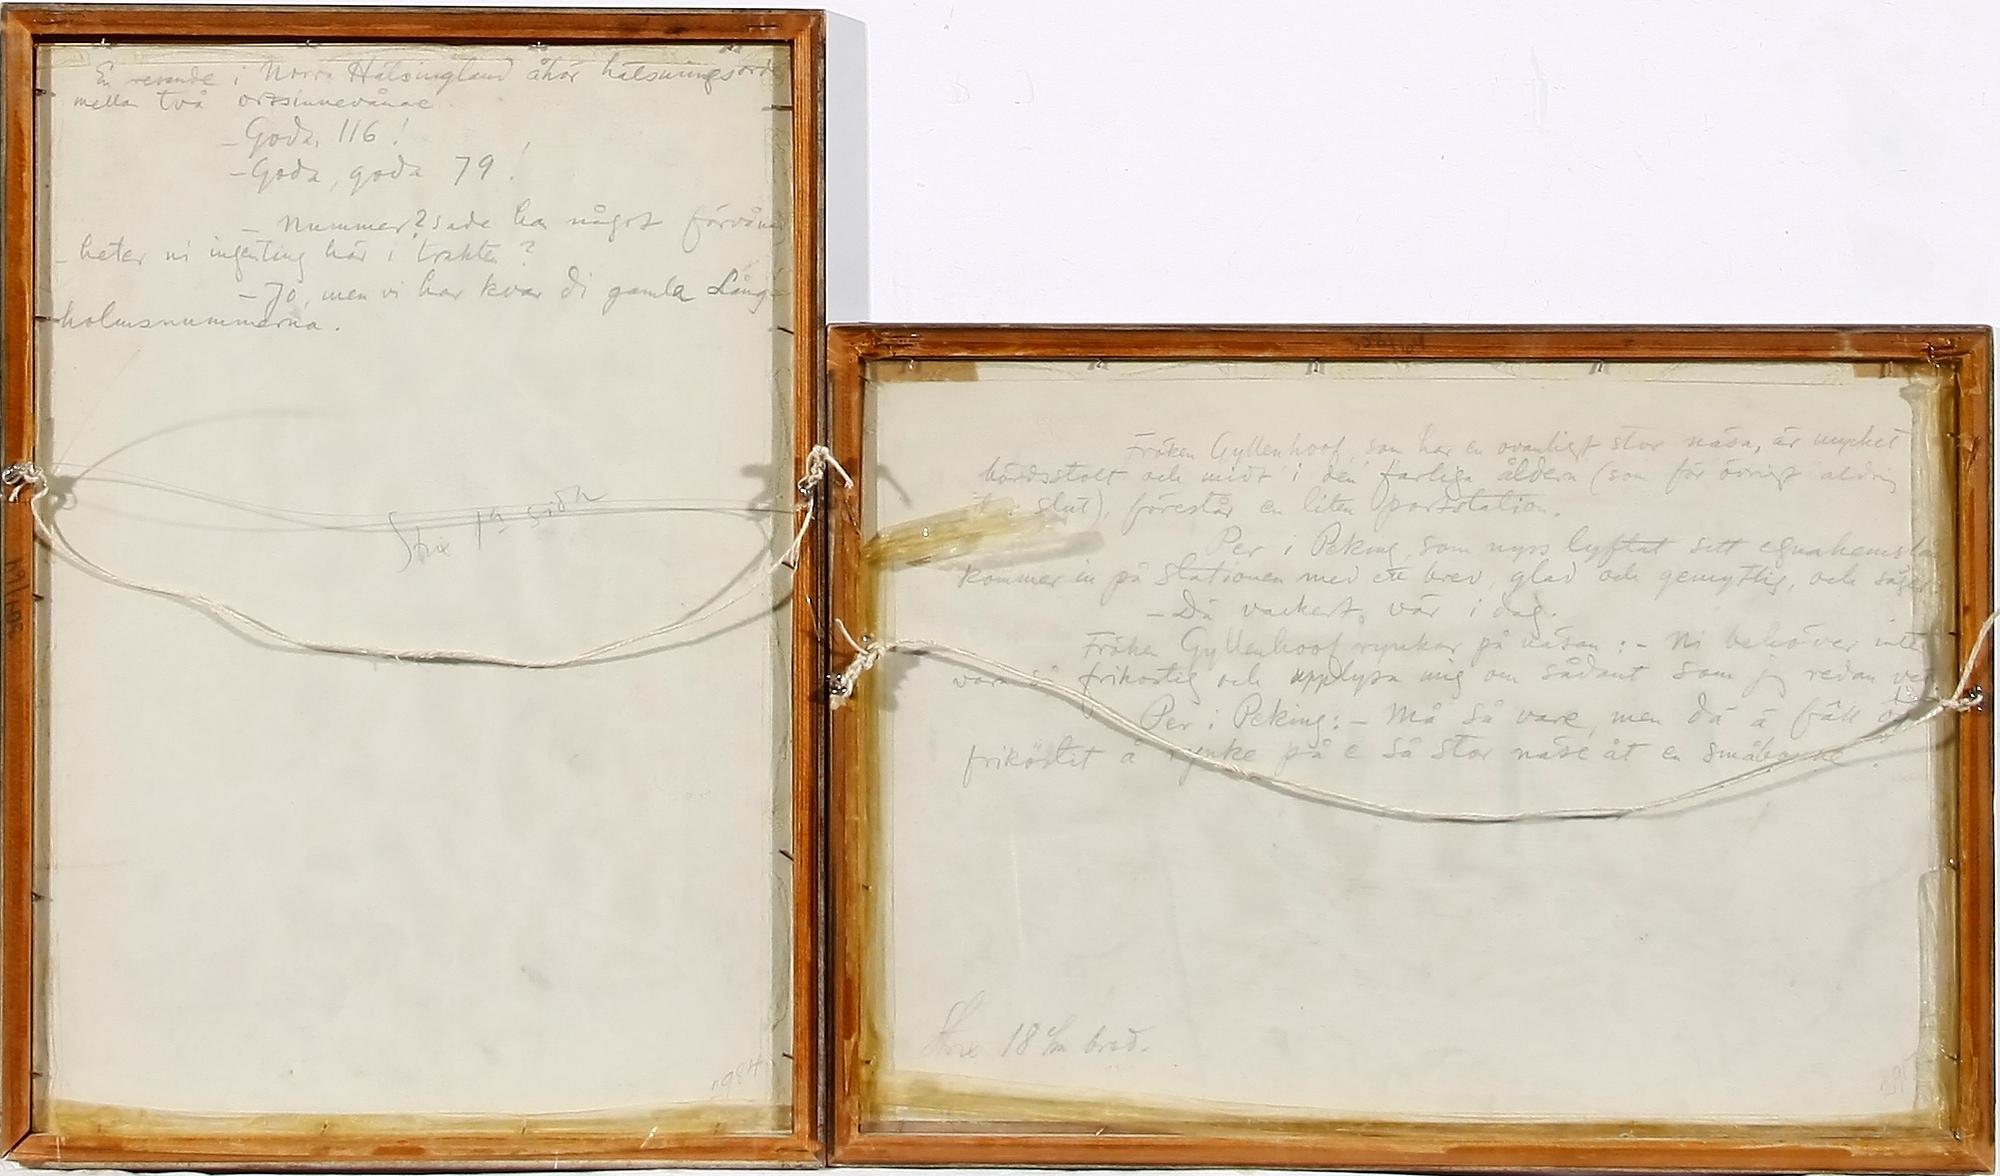 En resande i Norra Hälsingland åhör hälsningsord
mellan två ortsinnevånare.
– Goda, 116!
– Goda, goda 79!
– Nummer? sade han något förvånad
– heter ni ingenting här i trakten?
– Jo, men vi har kvar di gamla Lång-
holmsnummerna.
Strix 1a sidn
Fröken Gyllenhoof, som har en ovanligt stor näsa, är mycket
bördsstolt och midt i den farliga åldern (som för övrigt aldrig
slut), förestår en liten poststation.
Per i Peking, som nyss lyftat sitt egnahemslån
kommer in på stationen med ett brev, glad och gemytlig, och säger
– Dä vackert vär i dag.
Fröken Gyllenhoof rynkar på näsan: – Ni behöver inte
vara så frikostig och upplysa mig om sådant som jag redan vet
Per i Peking: – Må så vare, men dä ä fäll
frikostit å rynke på e så stor näse åt en småbonne.
Strix 18 c/m bred.